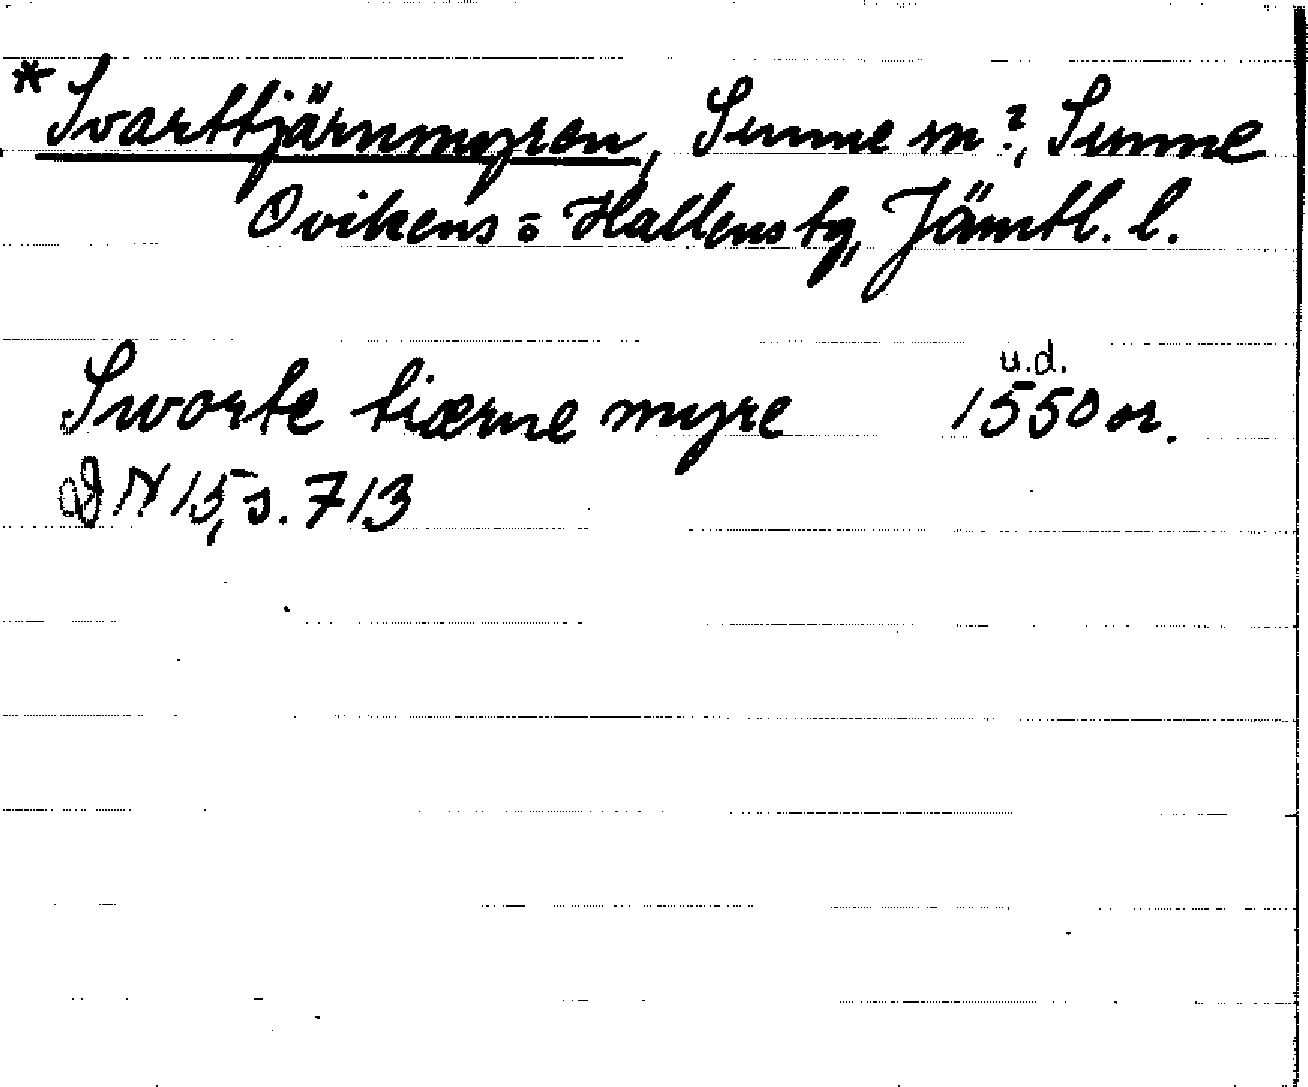 *Svarttjärnmyren, Sunne sn?, Sunne
Ovikens= Hallens tg, Jämtl. l.
Sworte tiærne myre u.d. 1550 or.
DN 15, s. 713